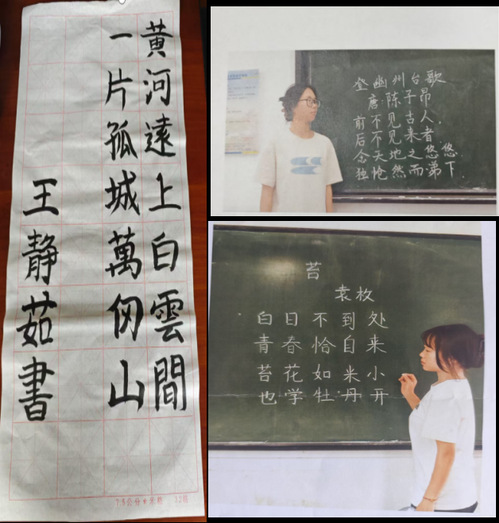 黄河遠上白雲間
一片孤城萬仞山
王静茹書
登幽州台歌
唐·陈子昂
前不见古人，
后不见来者
念天地之悠悠
独怆然而涕下
苔
袁枚
白日不到处
青春恰自来
苔花如米小
也学牡丹开